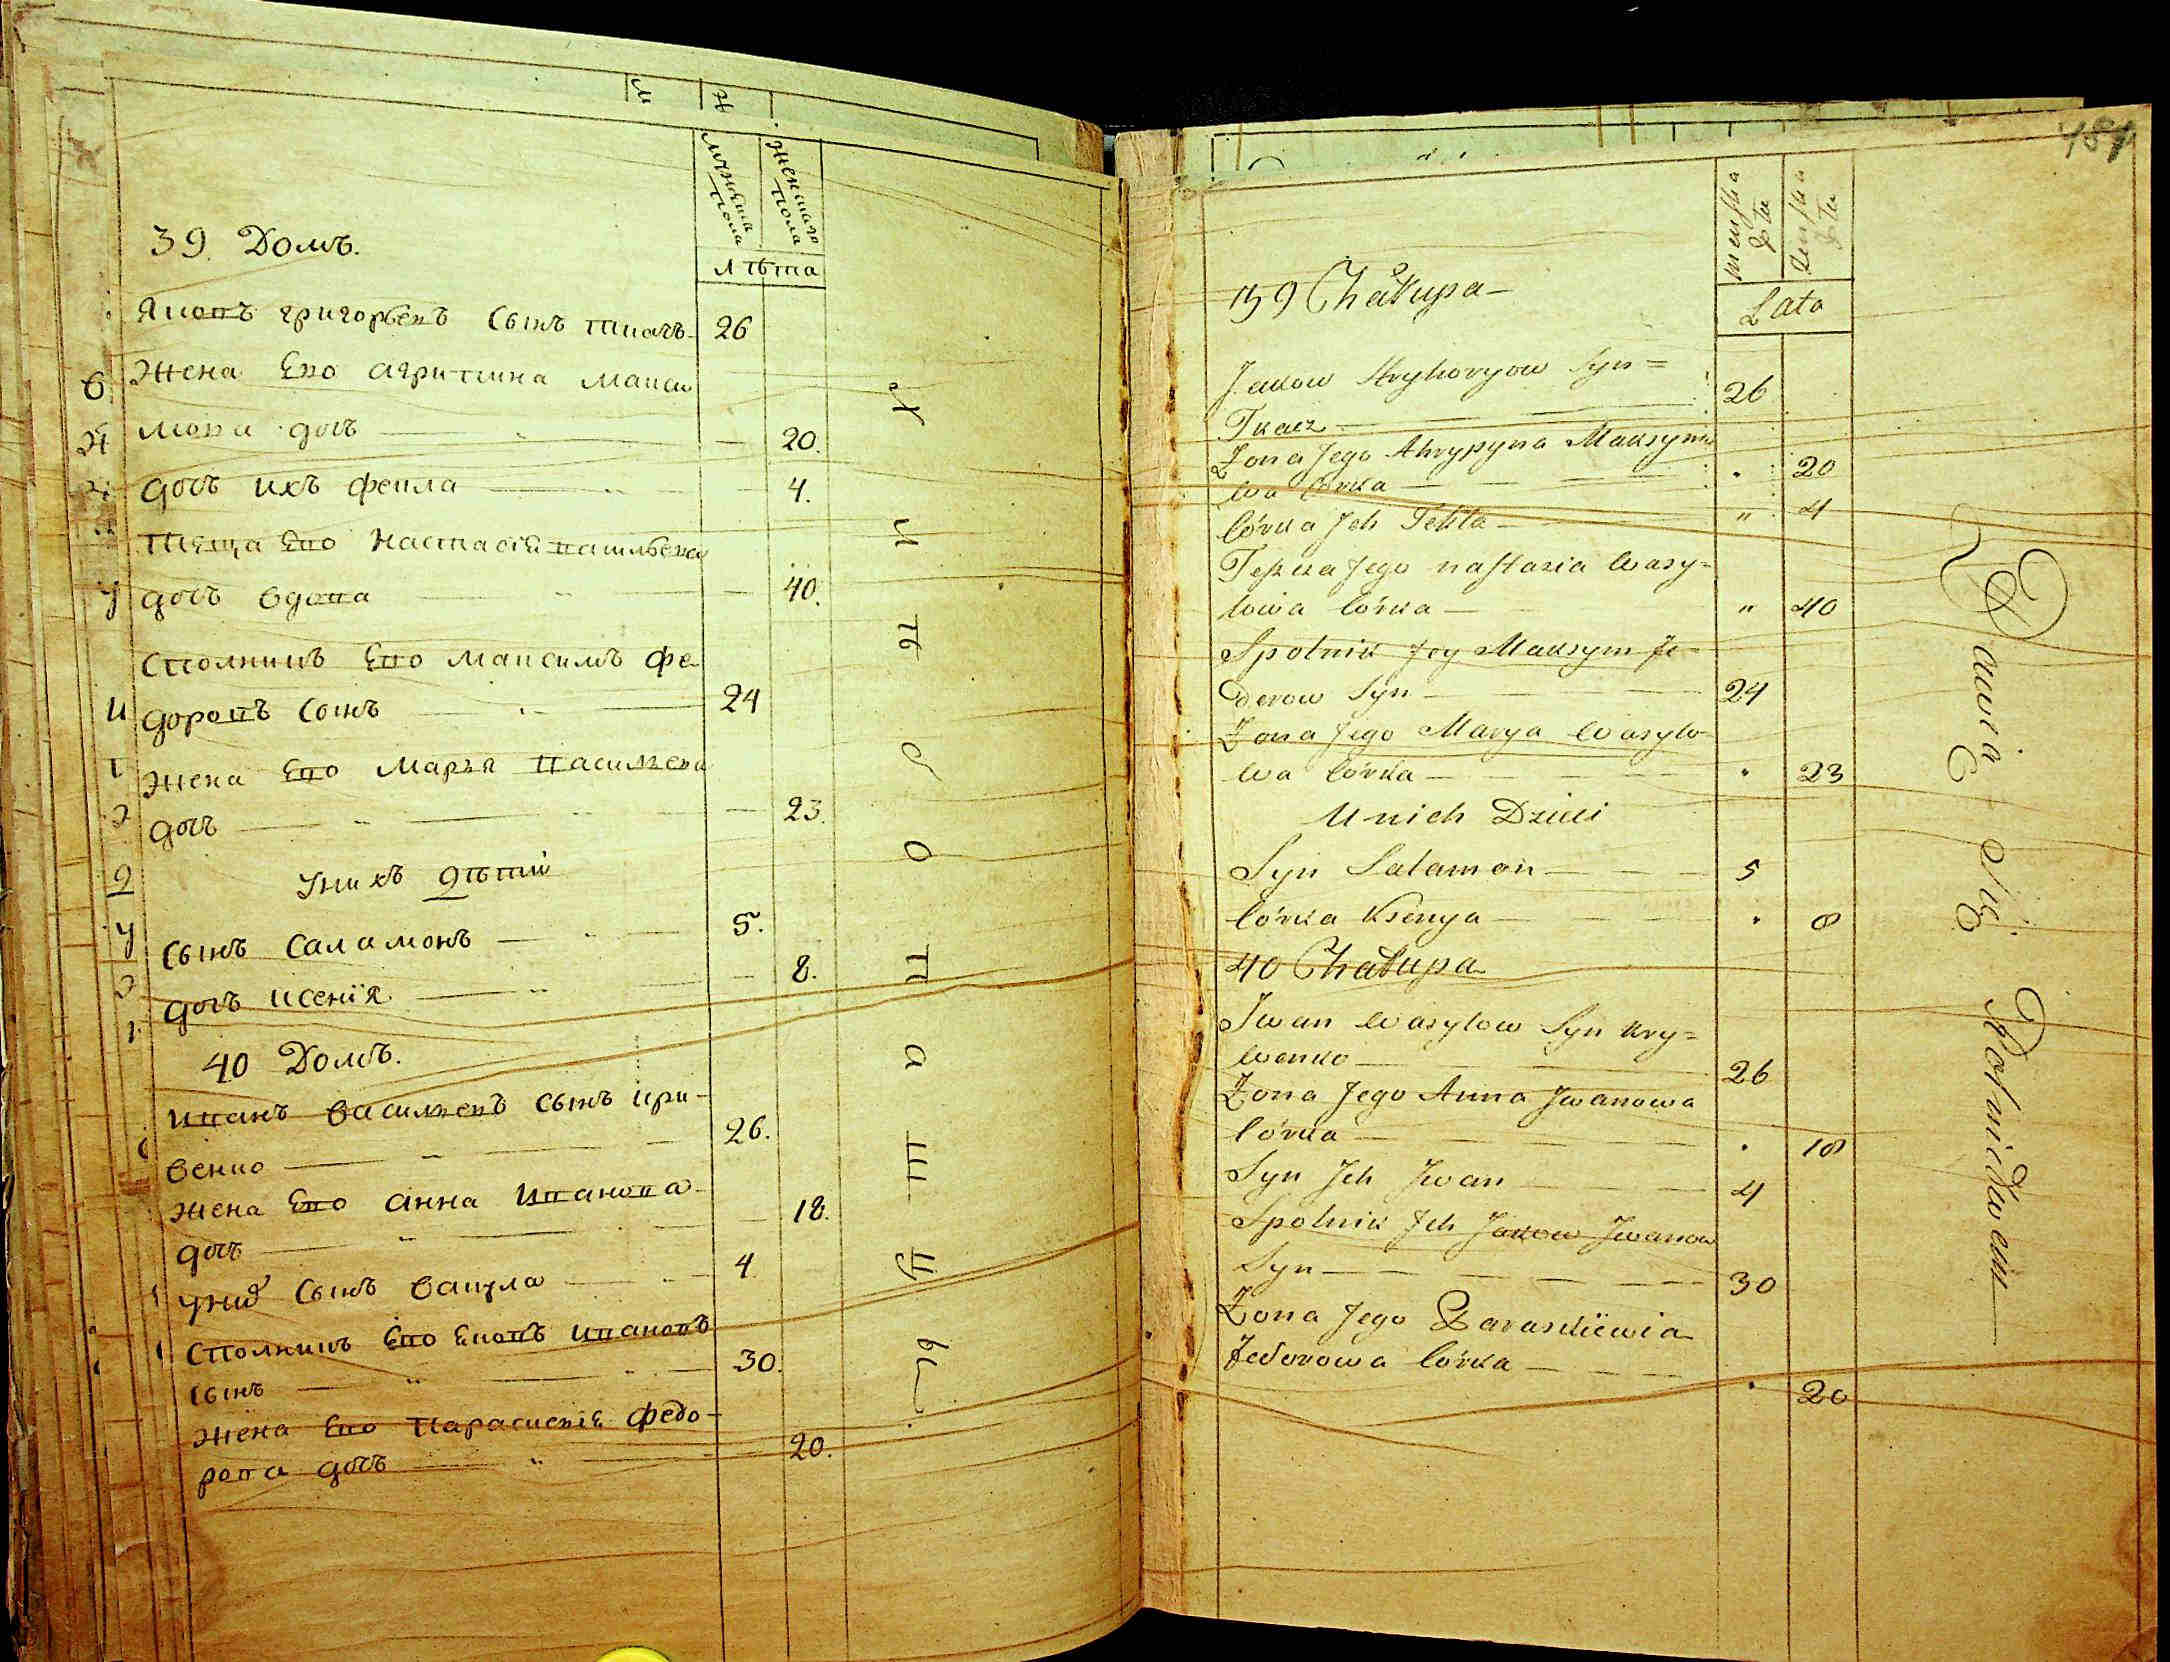 М Ж
мужеска пола
женскаго пола
лѣта
39. Домъ.
Яковъ григорьевъ сынъ ткачь 26
жена Его агрипина макси
мова дочь 20.
дочь ихъ фекла 4.
теща Его настасїе васильева
дочь вдова 40.
сполникъ Его максимъ фе-
доровъ сынъ 24
жена Его Марья василева
дочь 23.
уникъ дѣти
сынъ саламонъ 5.
дочь ксенїя 8.
40 Домъ.
иванъ василевъ сынъ кри-
венко 26.
жена Его анна иванова
дочь 18.
сынъ вакула 4
сполникъ Его Яковъ ивановъ
сынъ 30.
жена Его параскевїе федо-
рова дочь 20.
481
męska płeć
żeńska płeć
Lata
39 Chałupa
Jakow Hryhoryow Syn =
Tkacz 26
Żona Jego Ahrypyna Maksymo
wa Córka " 20
Córka Jch Tekla " 4
Teszcza Jego nastazia Wasy=
lowa Córka " 40
Spolnik Jey Maksym Fe=
derow Syn 24
Żona Jego Marya Wasylo
wa Córka " 23
U nich Dzieci
Syn Salamon 5
Córka Ksenya " 8
40 Chałupa
Jwan Wasylow Syn Kry=
wenko 26
Żona Jego Anna Jwanowa
Córka " 18
Syn Jch Jwan 4
Spolnik Jch Jakow Jwanow
Syn 30
Żona Jego Paraskiewia
Fedorowa Córka " 20